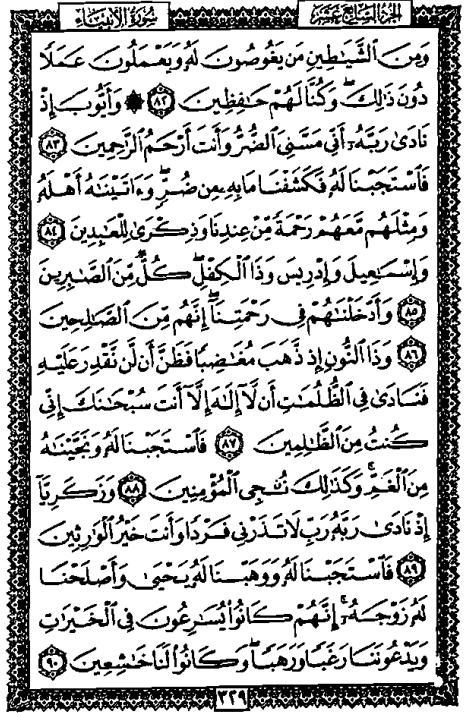 الجزء السابع عشر سورة الأنبياء
وَمِنَ ٱلشَّيَٰطِينِ مَن يَغُوصُونَ لَهُۥ وَيَعْمَلُونَ عَمَلًا
دُونَ ذَٰلِكَ ۖ وَكُنَّا لَهُمْ حَٰفِظِينَ ٨٢ ۞ وَأَيُّوبَ إِذْ
نَادَىٰ رَبَّهُۥٓ أَنِّى مَسَّنِىَ ٱلضُّرُّ وَأَنتَ أَرْحَمُ ٱلرَّٰحِمِينَ ٨٣
فَٱسْتَجَبْنَا لَهُۥ فَكَشَفْنَا مَا بِهِۦ مِن ضُرٍّ ۖ وَءَاتَيْنَٰهُ أَهْلَهُۥ
وَمِثْلَهُم مَّعَهُمْ رَحْمَةً مِّنْ عِندِنَا وَذِكْرَىٰ لِلْعَٰبِدِينَ ٨٤
وَإِسْمَٰعِيلَ وَإِدْرِيسَ وَذَا ٱلْكِفْلِ ۖ كُلٌّ مِّنَ ٱلصَّٰبِرِينَ
٨٥ وَأَدْخَلْنَٰهُمْ فِى رَحْمَتِنَآ ۖ إِنَّهُم مِّنَ ٱلصَّٰلِحِينَ
٨٦ وَذَا ٱلنُّونِ إِذ ذَّهَبَ مُغَٰضِبًا فَظَنَّ أَن لَّن نَّقْدِرَ عَلَيْهِ
فَنَادَىٰ فِى ٱلظُّلُمَٰتِ أَن لَّآ إِلَٰهَ إِلَّآ أَنتَ سُبْحَٰنَكَ إِنِّى
كُنتُ مِنَ ٱلظَّٰلِمِينَ ٨٧ فَٱسْتَجَبْنَا لَهُۥ وَنَجَّيْنَٰهُ
مِنَ ٱلْغَمِّ ۚ وَكَذَٰلِكَ نُۨجِى ٱلْمُؤْمِنِينَ ٨٨ وَزَكَرِيَّآ
إِذْ نَادَىٰ رَبَّهُۥ رَبِّ لَا تَذَرْنِى فَرْدًا وَأَنتَ خَيْرُ ٱلْوَٰرِثِينَ
٨٩ فَٱسْتَجَبْنَا لَهُۥ وَوَهَبْنَا لَهُۥ يَحْيَىٰ وَأَصْلَحْنَا
لَهُۥ زَوْجَهُۥٓ ۚ إِنَّهُمْ كَانُوا۟ يُسَٰرِعُونَ فِى ٱلْخَيْرَٰتِ
وَيَدْعُونَنَا رَغَبًا وَرَهَبًا ۖ وَكَانُوا۟ لَنَا خَٰشِعِينَ ٩٠
٣٢٩